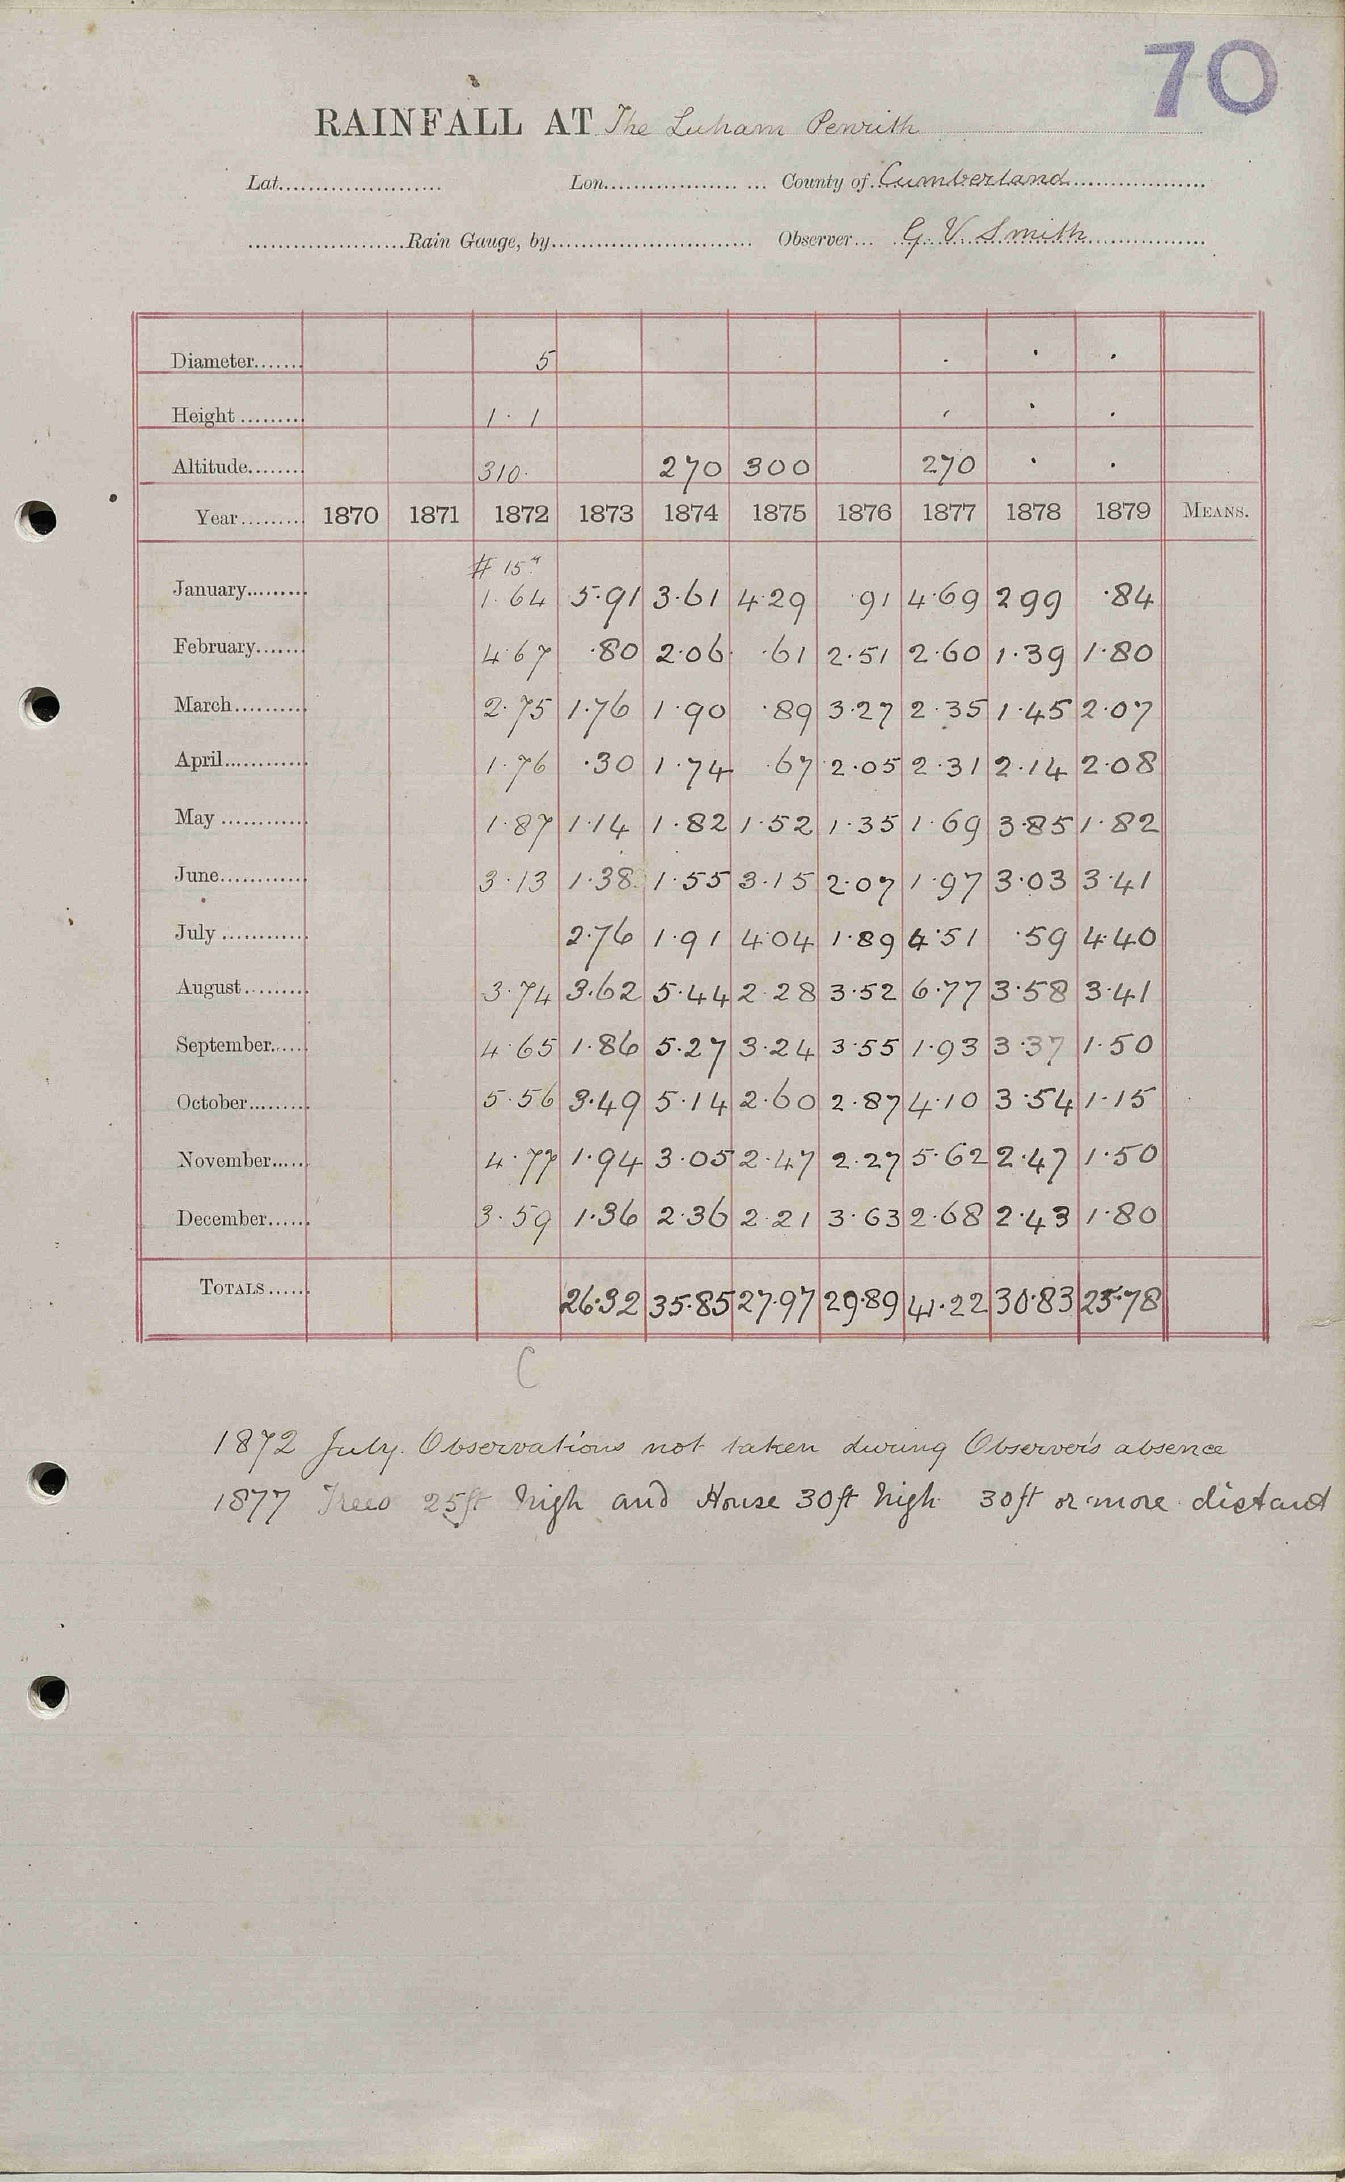 70
RAINFALL AT The Luham Penrith
Lat...................... Lon.................. ... County of Cumberland
.....................Rain Gauge, by........................... Observer... G. V. Smith
Diameter....... 5 . . .
Height ......... 1 . 1 ′ . .
Altitude........ 310. 270 300 270 . .
Year......... 1870 1871 1872 1873 1874 1875 1876 1877 1878 1879 MEANS.
# 15
January......... 1.64 5.91 3.61 4.29 .91 4.69 2.99 .84
February....... 4.67 .80 2.06 .61 2.51 2.60 1.39 1.80
March.......... 2.75 1.76 1.90 .89 3.27 2.35 1.45 2.07
April............ 1.76 .30 1.74 .67 2.05 2.31 2.14 2.08
May ............ 1.87 1.14 1.82 1.52 1.35 1.69 3.85 1.82
June............ 3.13 1.38 1.55 3.15 2.07 1.97 3.03 3.41
July ............ 2.76 1.91 4.04 1.89 4.51 .59 4.40
August......... 3.74 3.62 5.44 2.28 3.52 6.77 3.58 3.41
September...... 4.65 1.86 5.27 3.24 3.55 1.93 3.37 1.50
October......... 5.56 3.49 5.14 2.60 2.87 4.10 3.54 1.15
November...... 4.77 1.94 3.05 2.47 2.27 5.62 2.47 1.50
December...... 3.59 1.36 2.36 2.21 3.63 2.68 2.43 1.80
TOTALS...... 26.32 35.85 27.97 29.89 41.22 30.83 25.78
C
1872 July. Observations not taken during Observer's absence
1877 Trees 25ft high and House 30ft high 30ft or more distant